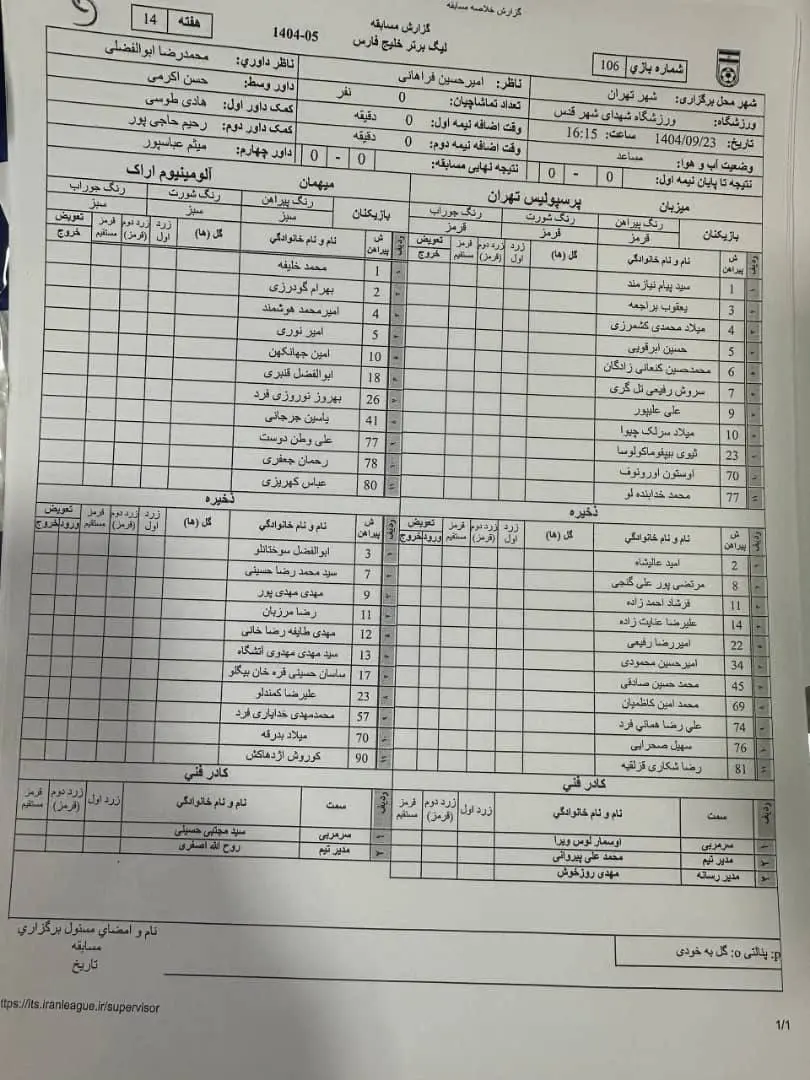 گزارش خلاصه مسابقه
گزارش مسابقه
لیگ برتر خلیج فارس
1404-05
هفته 14
شماره بازي 106
شهر محل برگزاری: شهر تهران
ورزشگاه: ورزشگاه شهدای شهر قدس
تاریخ: 1404/09/23 ساعت: 16:15
وضعیت آب و هوا: مساعد
نتیجه تا پایان نیمه اول: 0 - 0
ناظر: امیرحسین فراهانی
تعداد تماشاچیان: 0 نفر
وقت اضافه نیمه اول: 0 دقیقه
وقت اضافه نیمه دوم: 0 دقیقه
نتیجه نهایی مسابقه: 0 - 0
ناظر داوری: محمدرضا ابوالفضلی
داور وسط: حسن اکرمی
کمک داور اول: هادی طوسی
کمک داور دوم: رحیم حاجی پور
داور چهارم: میثم عباسپور
میزبان پرسپولیس تهران
بازیکنان رنگ پیراهن رنگ شورت رنگ جوراب
قرمز قرمز قرمز
ردیف ش پیراهن نام و نام خانوادگي گل (ها) زرد اول زرد دوم (قرمز) قرمز مستقیم تعویض خروج
1 سید پیام نیازمند
3 یعقوب براجعه
4 میلاد محمدی کشمرزی
5 حسین ابرقویی
6 محمدحسین کنعانی زادگان
7 سروش رفیعی تل گری
9 علی علیپور
10 میلاد سرلک چیوا
23 تیوی بیفوماکولوسا
70 اوستون اورونوف
77 محمد خدابنده لو
ذخیره
ردیف ش پیراهن نام و نام خانوادگي گل (ها) زرد اول زرد دوم (قرمز) قرمز مستقیم تعویض ورود خروج
2 امید عالیشاه
8 مرتضی پور علی گنجی
11 فرشاد احمد زاده
14 علیرضا عنایت زاده
22 امیررضا رفیعی
34 امیرحسین محمودی
45 محمد حسین صادقی
69 محمد امین کاظمیان
74 علی رضا همائی فرد
76 سهیل صحرایی
81 رضا شکاری قزلقیه
کادر فني
ردیف سمت نام و نام خانوادگي زرد اول زرد دوم (قرمز) قرمز مستقیم
۱ سرمربی اوسمار لوس ویرا
۲ مدیر تیم محمد علی پیروانی
۳ مدیر رسانه مهدی روزخوش
میهمان آلومینیوم اراک
بازیکنان رنگ پیراهن رنگ شورت رنگ جوراب
سبز سبز سبز
ردیف ش پیراهن نام و نام خانوادگي گل (ها) زرد اول زرد دوم (قرمز) قرمز مستقیم تعویض خروج
1 محمد خلیفه
2 بهرام گودرزی
4 امیرمحمد هوشمند
5 امیر نوری
10 امین جهانکهن
18 ابوالفضل قنبری
26 بهروز نوروزی فرد
41 یاسین جرجانی
77 علی وطن دوست
78 رحمان جعفری
80 عباس کهریزی
ذخیره
ردیف ش پیراهن نام و نام خانوادگي گل (ها) زرد اول زرد دوم (قرمز) قرمز مستقیم تعویض ورود خروج
3 ابوالفضل سوختانلو
7 سید محمد رضا حسینی
9 مهدی مهدی پور
11 رضا مرزبان
12 مهدی طایفه رضا خانی
13 سید مهدی مهدوی آتشگاه
17 ساسان حسینی قره خان بیگلو
23 علیرضا کمندلو
57 محمدمهدی خدایاری فرد
70 میلاد بدرقه
90 کوروش اژدهاکش
کادر فني
ردیف سمت نام و نام خانوادگي زرد اول زرد دوم (قرمز) قرمز مستقیم
۱ سرمربی سید مجتبی حسینی
۲ مدیر تیم روح الله اصغری
p: پنالتی o: گل به خودی
نام و امضاي مسئول برگزاري
مسابقه
تاریخ
ttps://its.iranleague.ir/supervisor
1/1